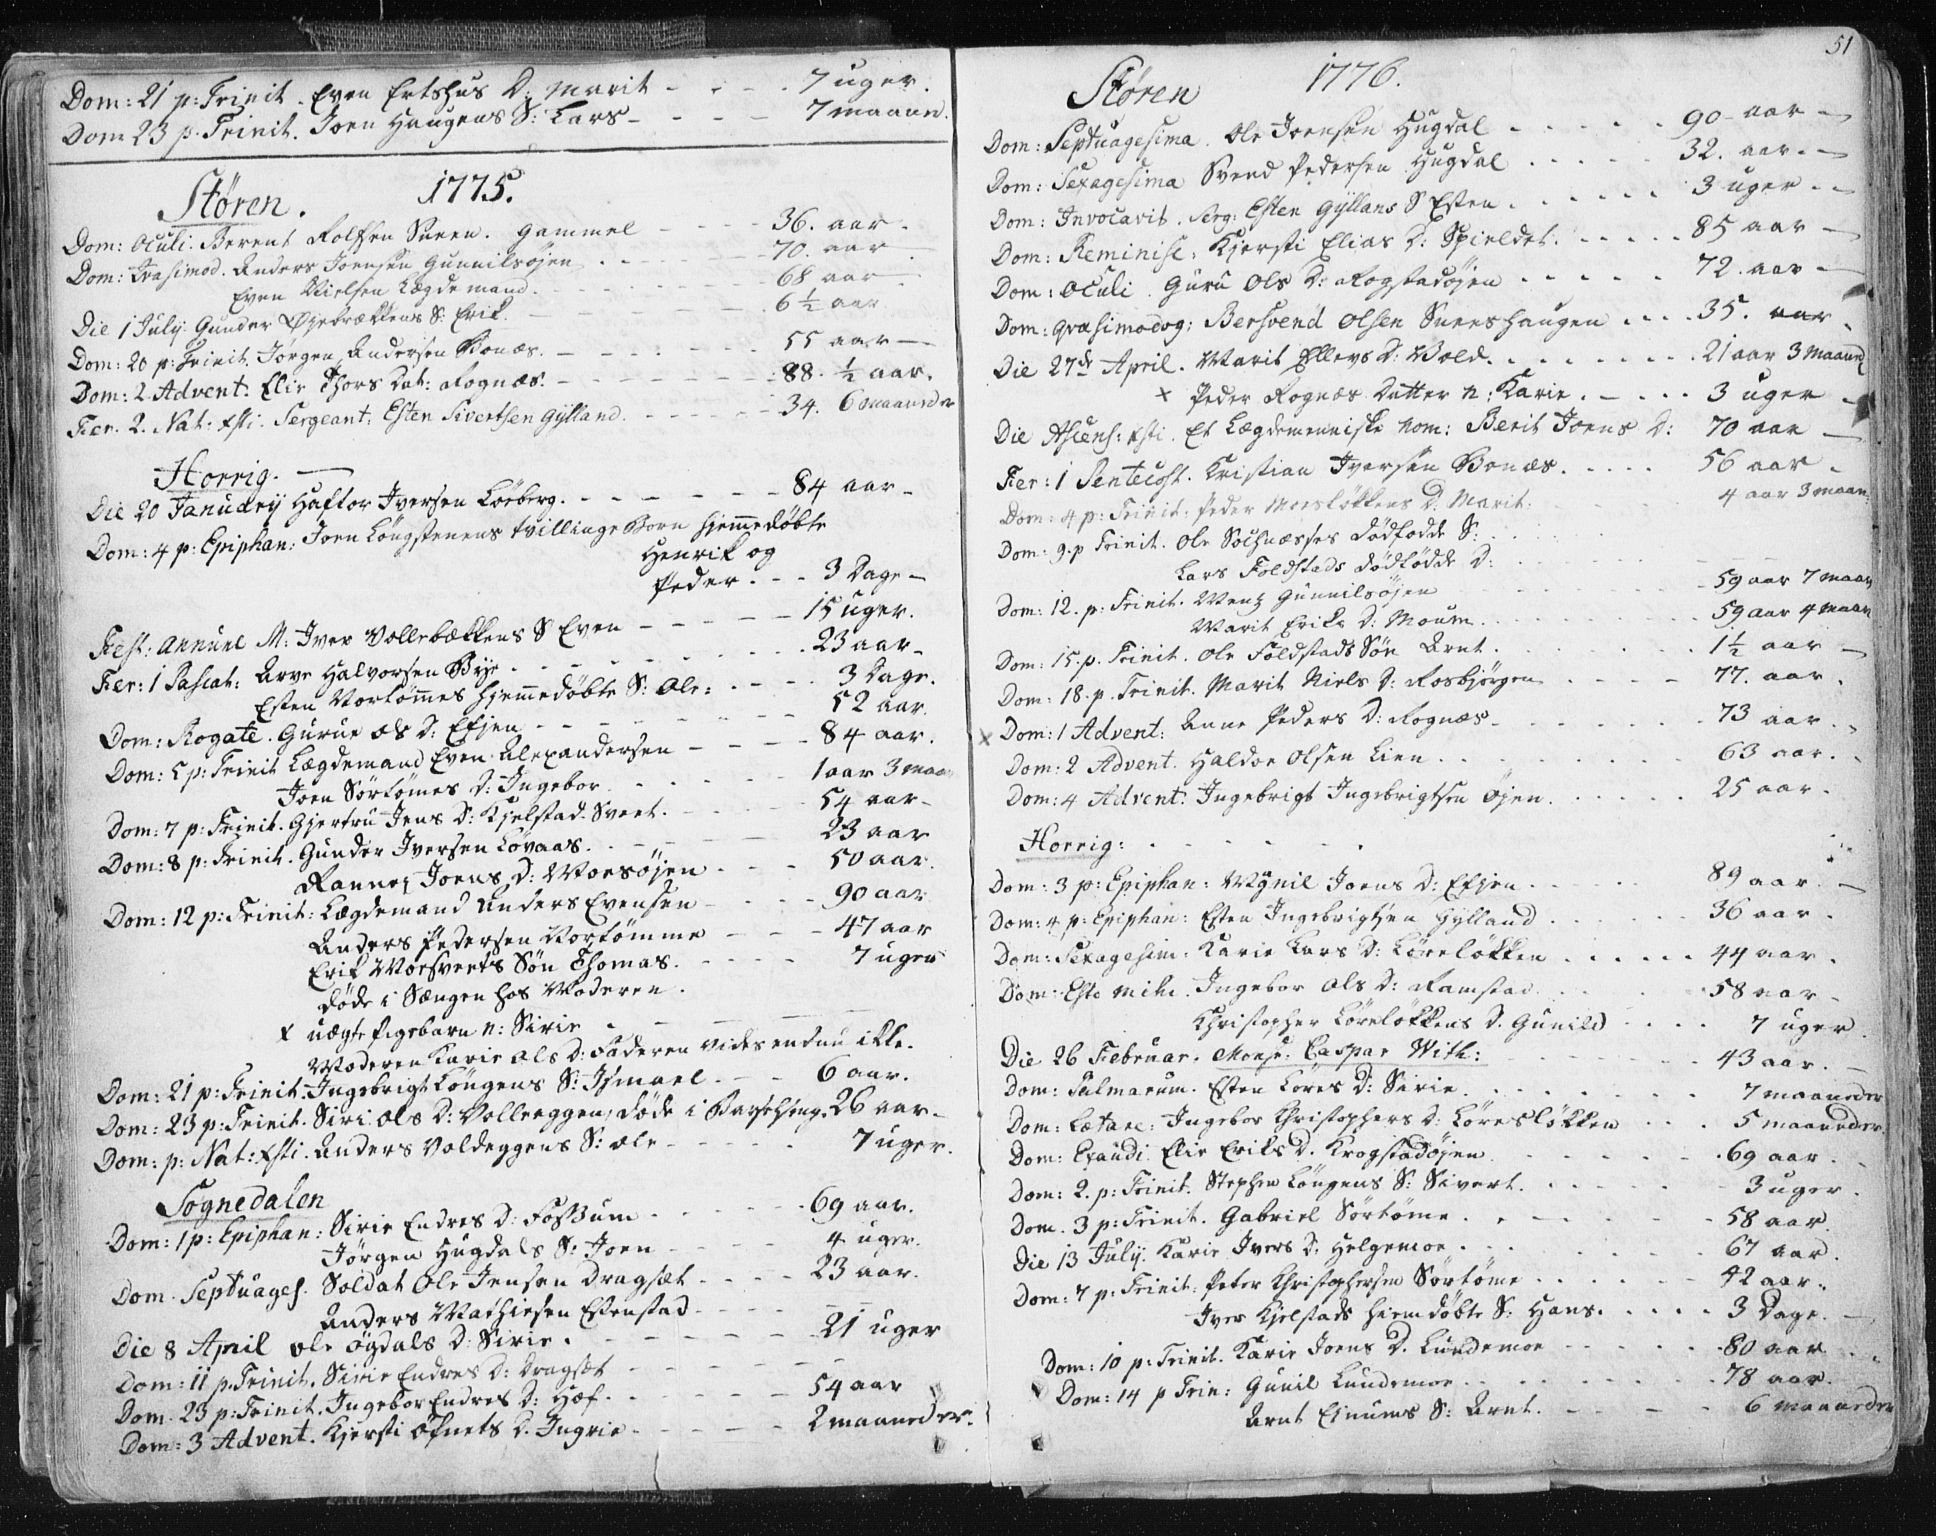 Dom: 21 p: Trinit. Even Ertshus D: Marit - - - 7 uger.
Dom 23 p. Trinit. Joen Haugens S: Lars - - - - 7 maaned.
Støren. 1775.
Dom: Oculi. Berent Rolfsen Sneen. gammel - - - - 36. aar.
Dom: Qvasimod. Anders Joensen Gunnilsøjen - - - - 70. aar
Even Nielsen Lægdemand. - - - - 68 aar
Die 1 July. Gunder Øjebrækkens S: Erik. - - - - 6 ½ aar.
Dom: 20 p: Trinit. Jørgen Andersen Bonæs. - - - - 55 aar
Dom: 2 Advent: Elie Thors Dat: Rognæs. - - - - 88. ½ aar.
Fer. 2. Nat: Xsti. Sergeant: Esten Sivertsen Gylland. - - - - 34. 6 maaneder
Horrig.
Die 20 Januarij Haftor Iversen Løeberg. - - - - 84 aar -
Dom: 4 p: Epiphan: Joen Løngstenens tvillinge Børn hjemmedøbte
Henrik og
Peder. - - 3 Dage -
Fest: Annunc M: Iver Vollebækkens S Even - - - - 15 uger.
Fer: 1 Pascat: Arve Halvorsen Bye. - - - - 23 aar -
Esten Vortømmes hjemmedøbte S: Ole: - - - - 3 Dage.
Dom: Rogate. Gurue Ols D: Efjen - - - - 52 aar.
Dom: 5 p: Trinit Lægdemand Even Alexandersen - - - - 84 aar.
Joen Sørtømes D: Ingebor. - - - - 1 aar 3 maan
Dom: 7 p: Trinit. Gjertru Jens D: Kjelstad Sveet. - - - - 54 aar -
Dom: 8 p: Trinit. Gunder Iversen Løvaas. - - - - 23 aar
Rannei Joens D: Moesøjen - - - - 50 aar.
Dom: 12 p: Trinit: Lægdemand Anders Evensen - - - - 90 aar
Anders Pedersen Vortømme - - - - 47 aar
Erik Moesveets Søn Thomas. - - - - 7 uger
døde i Sængen hos Moderen.
x uægte Pigebarn n: Sirie - - - -
Moderen Karie Ols D: Faderen vides endnu ikke.
Dom: 21 p: Trinit. Ingebrigt Løngens S: Ismael. - - 6 aar.
Dom: 23 p: Trinit. Siri Ols D: Volleeggen, døde i Barselseng. 26 aar -
Dom: p: Nat: Xsti. Anders Voldeggens S: Ole - - - - 7 uger.
Sognedalen
Dom: 1 p: Epiphan: Sirie Endres D: Fossum - - - - 69 aar.
Jørgen Hugdals S: Joen - - - - 4 uger.
Dom. Septuages. Soldat Ole Jensen Dragsæt - - - - 23 aar.
Anders Mathiesen Estenstad - - - -
Die 8 April Ole Øgdals D: Sirie. - - - - 21 uger
Dom: 11 p. Trinit. Sirie Endres D: Dragsæt - - - -
Dom. 23 p: Trinit. Ingebor Endres D: Hæf. - - - - 54 aar
Dom: 3 Advent. Kjersti Ofnets D. Ingrie - - - - 2 maaneder.
51
Støren 1776.
Dom: Septuagesima. Ole Joensen Hugdal - - - - 90 - aar -
Dom: Sexagesima Svend Pedersen Hugdal - - - - 32. aar. -
Dom: Invocavit. Serg: Esten Gyllans S Esten. - - - - 3 uger. -
Dom: Reminise: Kjersti Elias D: Spieldet. - - - - 85 aar -
Dom: Oculi. Guru Ols D: Rogstadøjen - - - - 72. aar -
Dom: Qvasimodog: Bersvend Olsen Sneeshaugen - - - - 35. aar.
Die 27de April. Marit Ellevs D: Vold. - - - - 21 aar 3 maaned
x Peder Rognæs Datter n: Karie. - - - - 3 uger -
Die Ascens: Xsti. Et Lægdemenniske Nom: Berit Joens D: 70 aar -
Fer: 1 Pentecost. Kristian Iversen Bonæs. - - - - 56 aar.
Dom: 4 p: Trinit: Peder Moesløkkens D. Marit. 4 aar 3 maan.
Dom: 9. p Trinit. Ole Sochnæsses dødfødde S: - - - -
Lars Foldstads dødfødde D: - - - -
Dom: 12. p: Trinit. Mentz Gunnilsøjen - - - - 59 aar 7 maan
Marit Eriks D: Moum. - - - - 59 aar 4 maan
Dom: 15. p. Trinit. Ole Foldstads Søn Arnt. - - - - 1½ aar -
Dom: 18. p. Trinit. Marit Niels D: Rosbjørgen - - - - 77. aar.
x Dom: 1 Advent: Anne Peders D: Rognæs - - - - 73 aar.
Dom: 2 Advent. Haldor Olsen Lien - - - - 63 aar.
Dom: 4 Advent: Ingebrigt Ingebrigtsen Øjen. - - - - 25 aar.
Horrig:
Dom: 3 p: Epiphan: Mynil Joens D: Efjen - - - - 89 aar. -
Dom: 4 p: Epiphan: Esten Ingebrigtsen Gylland - - - - 36 aar.
Dom: Sexagesim: Karie Lars D: Løreløkken - - - - 44 aar.
Dom: Esto Mihi. Ingebor Ols D: Ramstad - - - - 58 aar -
Christopher Løreløkkens D. Gunild - - - - 7 uger.
Die 26 Februar. Monsr: Caspar With: - - - - 43 aar. -
Dom: Palmarum. Esten Løres D: Sirie. - - - - 7 maaneder
Dom: Lætare: Ingebor Christophers D: Løresløkken - - - 5 maaneder.
Dom: Exaudi. Elie Eriks D. Krogstadøjen - - - - 69 aar.
Dom: 2. p: Trinit. Stephen Løngens S: Sivert. - - - - 3 uger.
Dom. 3 p: Trinit. Gabriel Sørtøme. - - - - 58 aar
Die 13 July. Karie Ivers D: Helgemoe. - - - - 67 aar.
Dom: 7 p: Trinit: Peter Christophersen Sørtøme - - - - 42 aar.
Iver Kjelstads hiemdøbte S: Hans. - - - - 3 Dage. -
Dom: 10 p: Trinit. Karie Joens D. Lundemoe - - - - 80 aar.
Dom: 14 p Trin: Gunil Lundemoe. - - - - 78 aar.
Arnt Ejnums S: Arnt. - - - - 6 maaneder